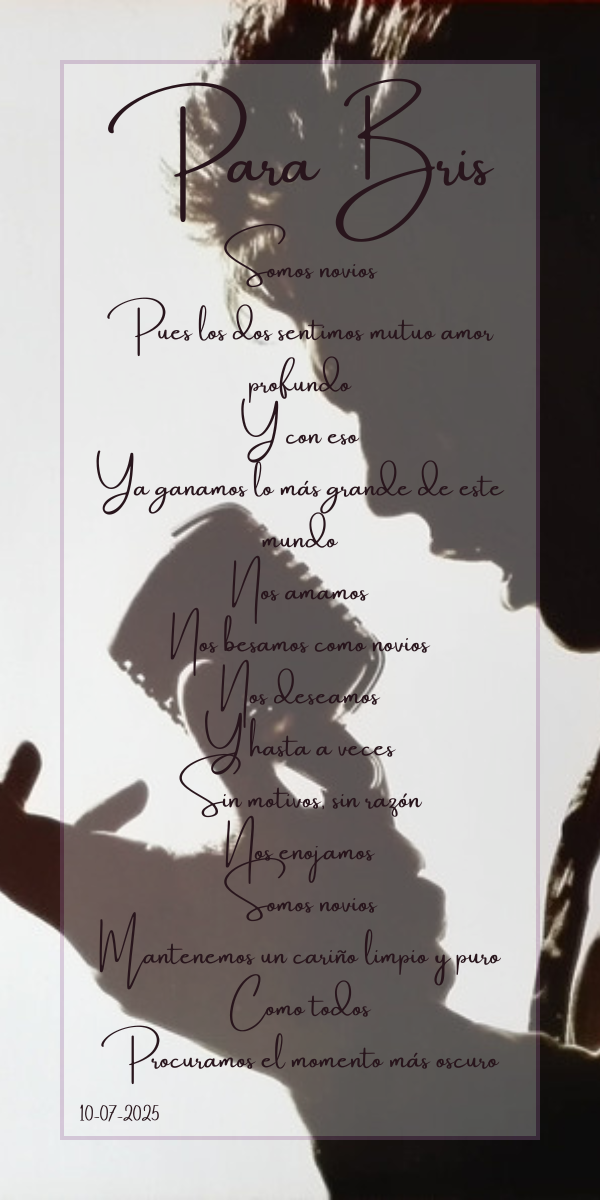 Para Bris
Somos novios
Pues los dos sentimos mutuo amor
profundo
Y con eso
Ya ganamos lo más grande de este
mundo
Nos amamos
Nos besamos como novios
Nos deseamos
Y hasta a veces
Sin motivos, sin razón
Nos enojamos
Somos novios
Mantenemos un cariño limpio y puro
Como todos
Procuramos el momento más oscuro
10-07-2025